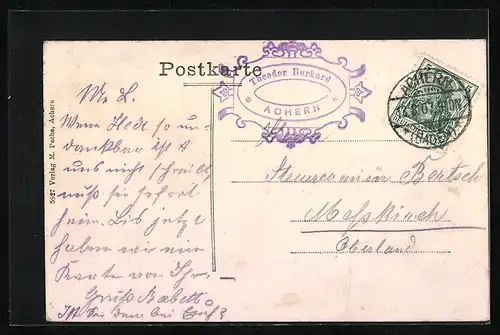 Postkarte
Theodor Burkard
ACHERN
ACHERN
(BADEN)
5527 Verlag M. Pechs, Achern
M. L.
Wenn Hedi so un-
dankbar ist &
uns nicht schreibt
muß sie sofort
heim. Bis jetzt
haben wir nur
Karte von Ihr.
Gruß Babette
Ist Sie denn bei Euch?
Steuercomissär Bertsch
Messkirch
Oberland